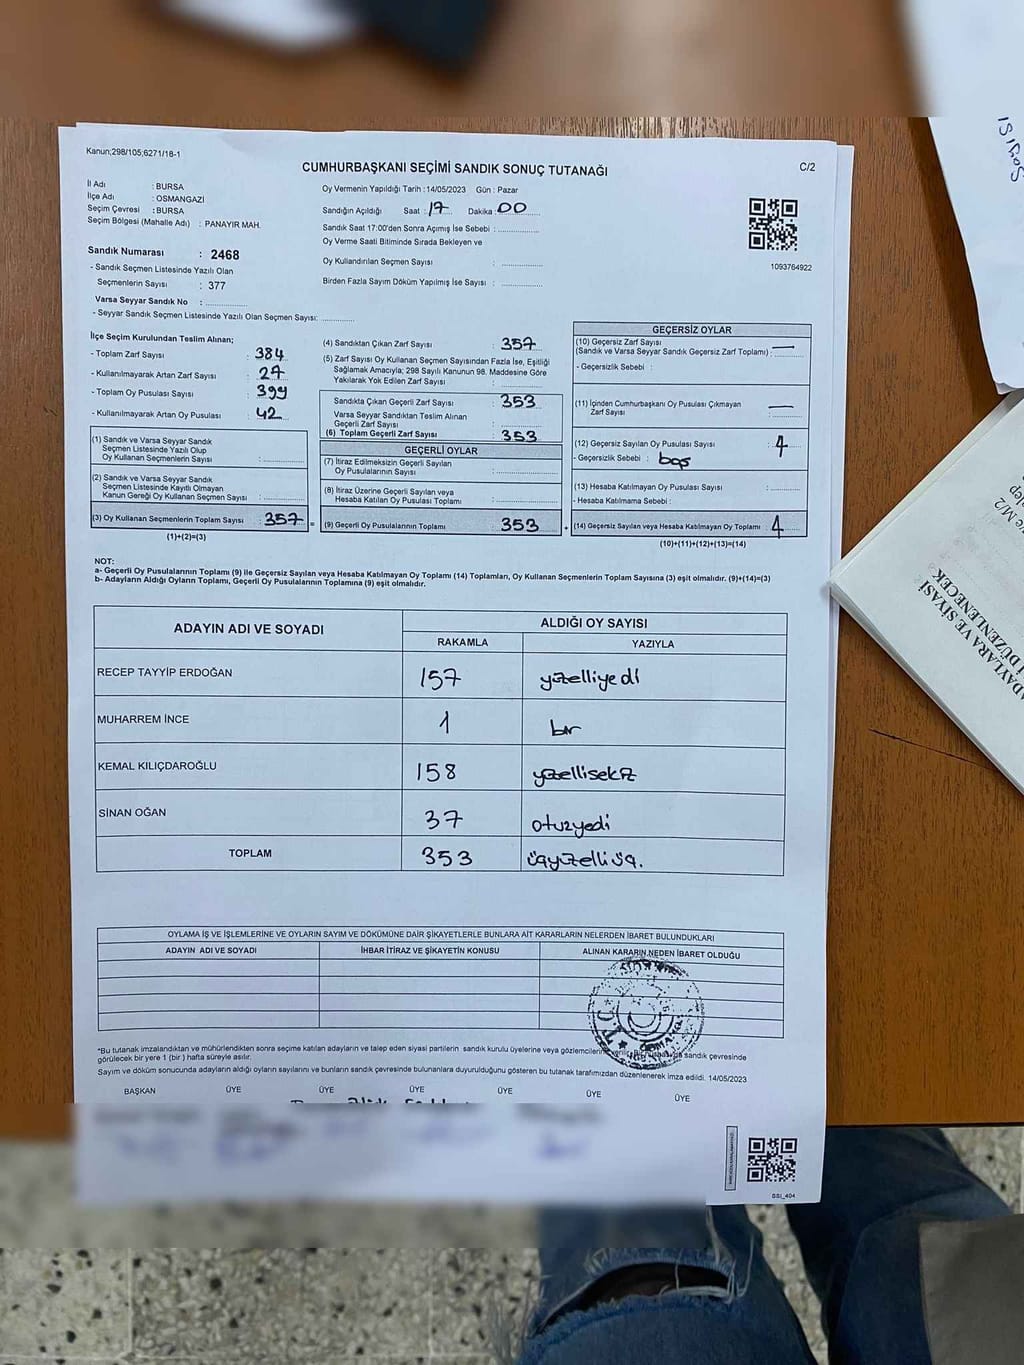 Kanun;298/105;6271/18-1
CUMHURBAŞKANI SEÇİMİ SANDIK SONUÇ TUTANAĞI
C/2
İl Adı : BURSA
İlçe Adı : OSMANGAZİ
Seçim Çevresi : BURSA
Seçim Bölgesi (Mahalle Adı) : PANAYIR MAH.
Sandık Numarası : 2468
- Sandık Seçmen Listesinde Yazılı Olan
Seçmenlerin Sayısı : 377
Varsa Seyyar Sandık No :
- Seyyar Sandık Seçmen Listesinde Yazılı Olan Seçmen Sayısı:
Oy Vermenin Yapıldığı Tarih : 14/05/2023 Gün : Pazar
Sandığın Açıldığı Saat : 17 Dakika : 00
Sandık Saat 17:00'den Sonra Açımış İse Sebebi :
Oy Verme Saati Bitiminde Sırada Bekleyen ve
Oy Kullandırılan Seçmen Sayısı :
Birden Fazla Sayım Döküm Yapılmış İse Sayısı :
1093764922
İlçe Seçim Kurulundan Teslim Alınan;
- Toplam Zarf Sayısı : 384
- Kullanılmayarak Artan Zarf Sayısı : 27
- Toplam Oy Pusulası Sayısı : 399
- Kullanılmayarak Artan Oy Pusulası : 42
(1) Sandık ve Varsa Seyyar Sandık
Seçmen Listesinde Yazılı Olup
Oy Kullanan Seçmenlerin Sayısı :
(2) Sandık ve Varsa Seyyar Sandık
Seçmen Listesinde Kayıtlı Olmayan
Kanun Gereği Oy Kullanan Seçmen Sayısı :
(3) Oy Kullanan Seçmenlerin Toplam Sayısı : 357
(1)+(2)=(3)
(4) Sandıktan Çıkan Zarf Sayısı : 357
(5) Zarf Sayısı Oy Kullanan Seçmen Sayısından Fazla İse, Eşitliği
Sağlamak Amacıyla; 298 Sayılı Kanunun 98. Maddesine Göre
Yakılarak Yok Edilen Zarf Sayısı :
Sandıkta Çıkan Geçerli Zarf Sayısı : 353
Varsa Seyyar Sandıktan Teslim Alınan
Geçerli Zarf Sayısı :
(6) Toplam Geçerli Zarf Sayısı : 353
GEÇERLİ OYLAR
(7) İtiraz Edilmeksizin Geçerli Sayılan
Oy Pusulalarının Sayısı :
(8) İtiraz Üzerine Geçerli Sayılan veya
Hesaba Katılan Oy Pusulası Toplamı :
= (9) Geçerli Oy Pusulalarının Toplamı : 353
GEÇERSİZ OYLAR
(10) Geçersiz Zarf Sayısı
(Sandık ve Varsa Seyyar Sandık Geçersiz Zarf Toplamı) : —
- Geçersizlik Sebebi :
(11) İçinden Cumhurbaşkanı Oy Pusulası Çıkmayan
Zarf Sayısı : —
(12) Geçersiz Sayılan Oy Pusulası Sayısı : 4
- Geçersizlik Sebebi : boş
(13) Hesaba Katılmayan Oy Pusulası Sayısı :
- Hesaba Katılmama Sebebi :
+ (14) Geçersiz Sayılan veya Hesaba Katılmayan Oy Toplamı : 4
(10)+(11)+(12)+(13)=(14)
NOT:
a- Geçerli Oy Pusulalarının Toplamı (9) ile Geçersiz Sayılan veya Hesaba Katılmayan Oy Toplamı (14) Toplamları, Oy Kullanan Seçmenlerin Toplam Sayısına (3) eşit olmalıdır. (9)+(14)=(3)
b- Adayların Aldığı Oyların Toplamı, Geçerli Oy Pusulalarının Toplamına (9) eşit olmalıdır.
ADAYIN ADI VE SOYADI ALDIĞI OY SAYISI
RAKAMLA YAZIYLA
RECEP TAYYİP ERDOĞAN 157 yüzelliyedi
MUHARREM İNCE 1 bir
KEMAL KILIÇDAROĞLU 158 yüzellisekiz
SİNAN OĞAN 37 otuzyedi
TOPLAM 353 üçyüzelliüç.
OYLAMA İŞ VE İŞLEMLERİNE VE OYLARIN SAYIM VE DÖKÜMÜNE DAİR ŞİKAYETLERLE BUNLARA AİT KARARLARIN NELERDEN İBARET BULUNDUKLARI
ADAYIN ADI VE SOYADI İHBAR İTİRAZ VE ŞİKAYETİN KONUSU ALINAN KARARIN NEDEN İBARET OLDUĞU
T.C.
*Bu tutanak imzalandıktan ve mühürlendikten sonra seçime katılan adayların ve talep eden siyasi partilerin sandık kurulu üyelerine veya gözlemcilerine verilir. Bir nüshası da sandık çevresinde
görülecek bir yere 1 (bir ) hafta süreyle asılır.
Sayım ve döküm sonucunda adayların aldığı oyların sayılarını ve bunların sandık çevresinde bulunanlara duyurulduğunu gösteren bu tutanak tarafımızdan düzenlenerek imza edildi. 14/05/2023
BAŞKAN ÜYE ÜYE ÜYE ÜYE ÜYE ÜYE
SSI_404
Sayısı
M/2
ADAYLARA VE SİYASİ
DÜZENLENECEK